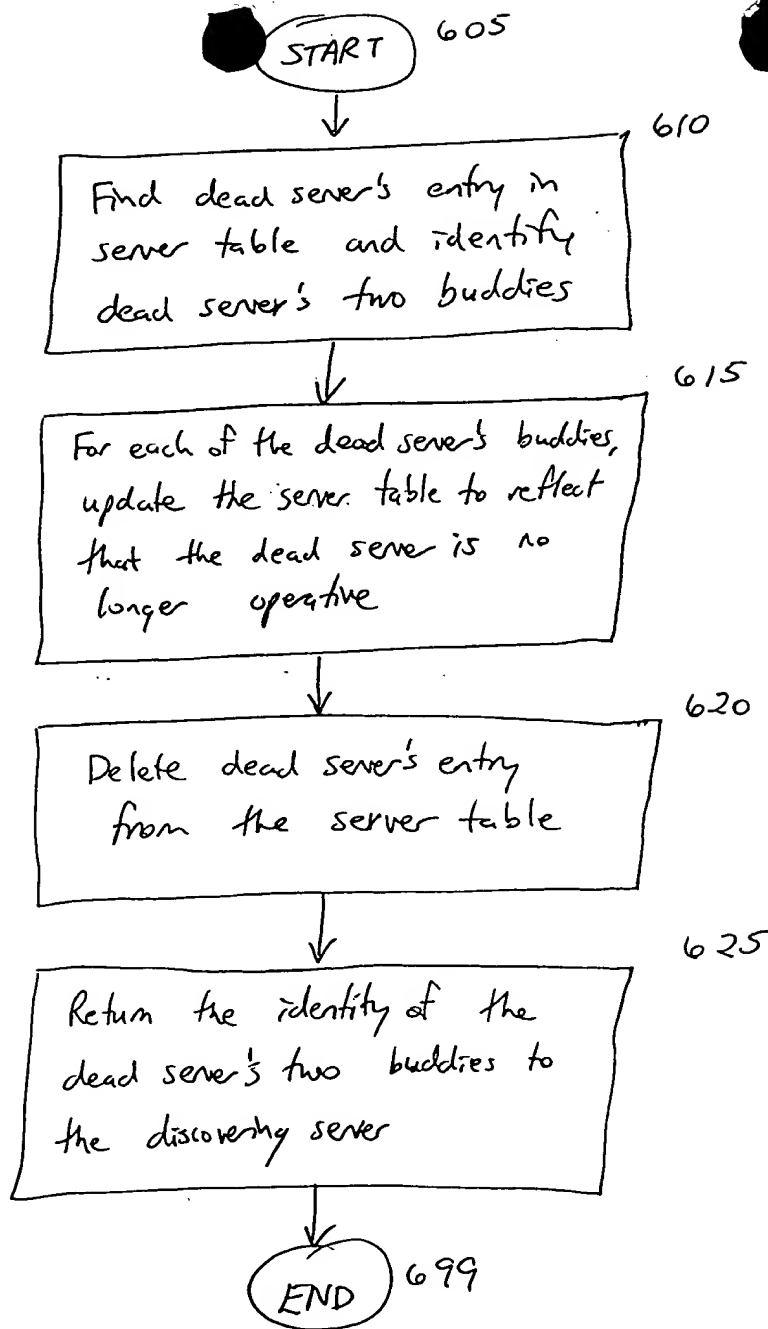 START
605
610
Find dead sever's entry in
server table and identify
dead server's two buddies
615
For each of the dead sever's buddies,
update the server table to reflect
that the dead server is no
longer operative
620
Delete dead sever's entry
from the server table
625
Return the identity of the
dead server's two buddies to
the discovering server
END
699